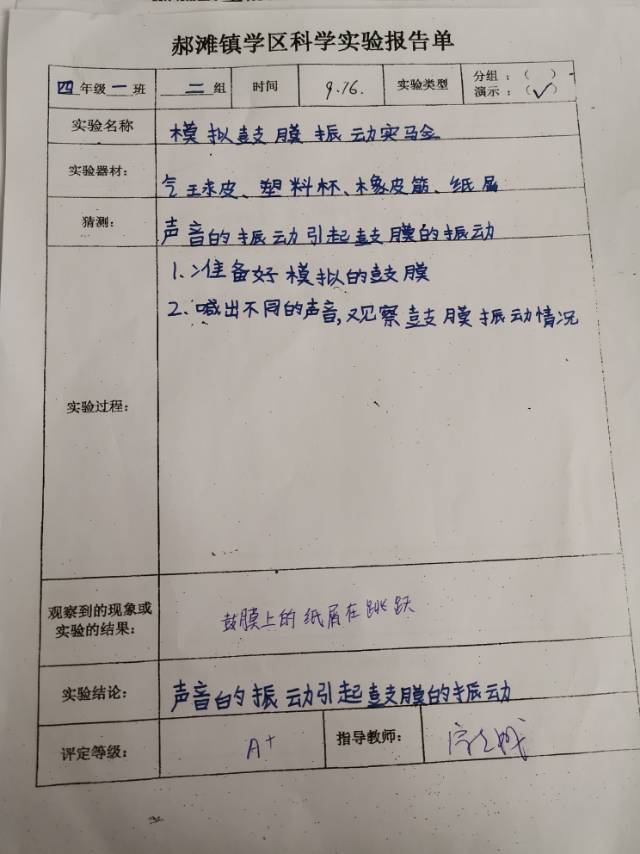 郝滩镇学区科学实验报告单
四年级一班 二组 时间 9.16. 实验类型 分组：（ ）
演示：（✓）
实验名称 模拟鼓膜振动实验
实验器材： 气球皮、塑料杯、橡皮筋、纸屑
猜测： 声音的振动引起鼓膜的振动
1.准备好模拟的鼓膜
2.喊出不同的声音,观察鼓膜振动情况
实验过程：
观察到的现象或
实验的结果： 鼓膜上的纸屑在跳跃
实验结论： 声音的振动引起鼓膜的振动
评定等级： A+ 指导教师：